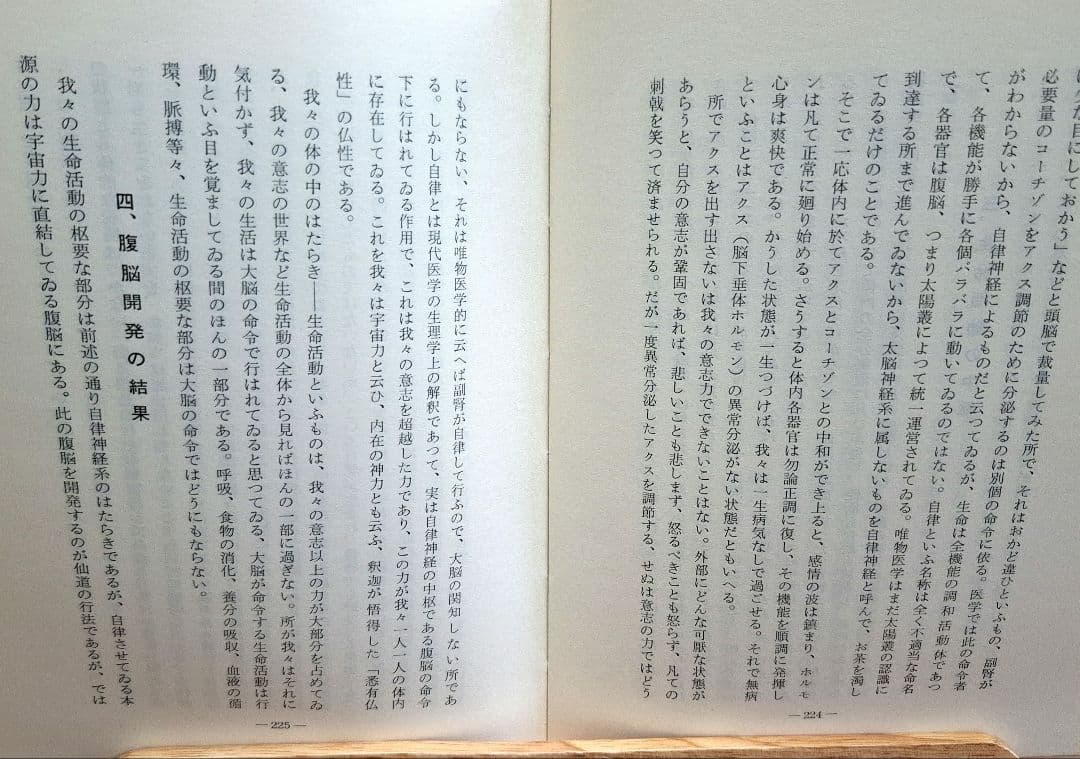 必要量のコーチゾンをアクス調節のために分泌するのは別個の命令に依る。医学では此の命令者
がわからないから、自律神経によるものだと云つてゐるが、生命は全機能の調和活動体であつ
て、各機能が勝手に各個バラバラに動いてゐるのではない。自律といふ名称は全く不適当な命名
で、各器官は腹脳、つまり太陽叢によつて統一運営されてゐる。唯物医学はまだ太陽叢の認識に
到達する所まで進んでゐないから、大脳神経系に属しないものを自律神経と呼んで、お茶を濁し
てゐるだけのことである。
そこで一応体内に於てアクスとコーチゾンとの中和ができ上ると、感情の波は鎮まり、ホルモ
ンは凡て正常に廻り始める。さうすると体内各器官は勿論正調に復し、その機能を順調に発揮し
心身は爽快である。かうした状態が一生つづけば、我々は一生病気なしで過ごせる。それで無病
といふことはアクス(脳下垂体ホルモン)の異常分泌がない状態だともいへる。
所でアクスを出す出さないは我々の意志力でできないことはない。外部にどんな可厭な状態が
あらうと、自分の意志が鞏固であれば、悲しいことも悲しまず、怒るべきことも怒らず、凡ての
刺戟を笑つて済ませられる。だが一度異常分泌したアクスを調節する、せぬは意志の力ではどう
—224—
にもならない、それは唯物医学的に云へば副腎が自律して行ふので、大脳の関知しない所であ
る。しかし自律とは現代医学の生理学上の解釈であつて、実は自律神経の中枢である腹脳の命令
下に行はれてゐる作用で、これは我々の意志を超越した力であり、この力が我々一人一人の体内
に存在してゐる。これを我々は宇宙力と云ひ、内在の神力とも云ふ、釈迦が悟得した「悉有仏
性」の仏性である。
我々の体の中のはたらき——生命活動といふものは、我々の意志以上の力が大部分を占めてゐ
る、我々の意志の世界など生命活動の全体から見ればほんの一部に過ぎない。所が我々はそれに
気付かず、我々の生活は大脳の命令で行はれてゐると思つてゐる、大脳が命令する生命活動は行
動といふ目を覚ましてゐる間のほんの一部分である。呼吸、食物の消化、養分の吸収、血液の循
環、脈搏等々、生命活動の枢要な部分は大脳の命令ではどうにもならない。
四、腹脳開発の結果
我々の生命活動の枢要な部分は前述の通り自律神経系のはたらきであるが、自律させてゐる本
源の力は宇宙力に直結してゐる腹脳にある。此の腹脳を開発するのが仙道の行法であるが、では
—225—